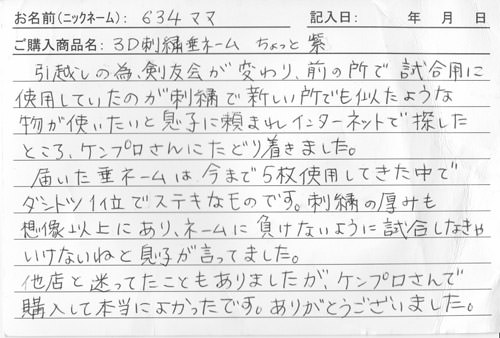 お名前(ニックネーム): 634ママ 記入日: 年 月 日
ご購入商品名: 3D刺繍垂ネーム ちょっと紫
引越しの為、剣友会が変わり、前の所で試合用に
使用していたのが刺繍で新しい所でも似たような
物が使いたいと息子に頼まれインターネットで探した
ところ、ケンプロさんにたどり着きました。
届いた垂ネームは今まで5枚使用してきた中で
ダントツ1位でステキなものです。刺繍の厚みも
想像以上にあり、ネームに負けないように試合しなきゃ
いけないねと息子が言ってました。
他店と迷ってたこともありましたが、ケンプロさんで
購入して本当によかったです。ありがとうございました。